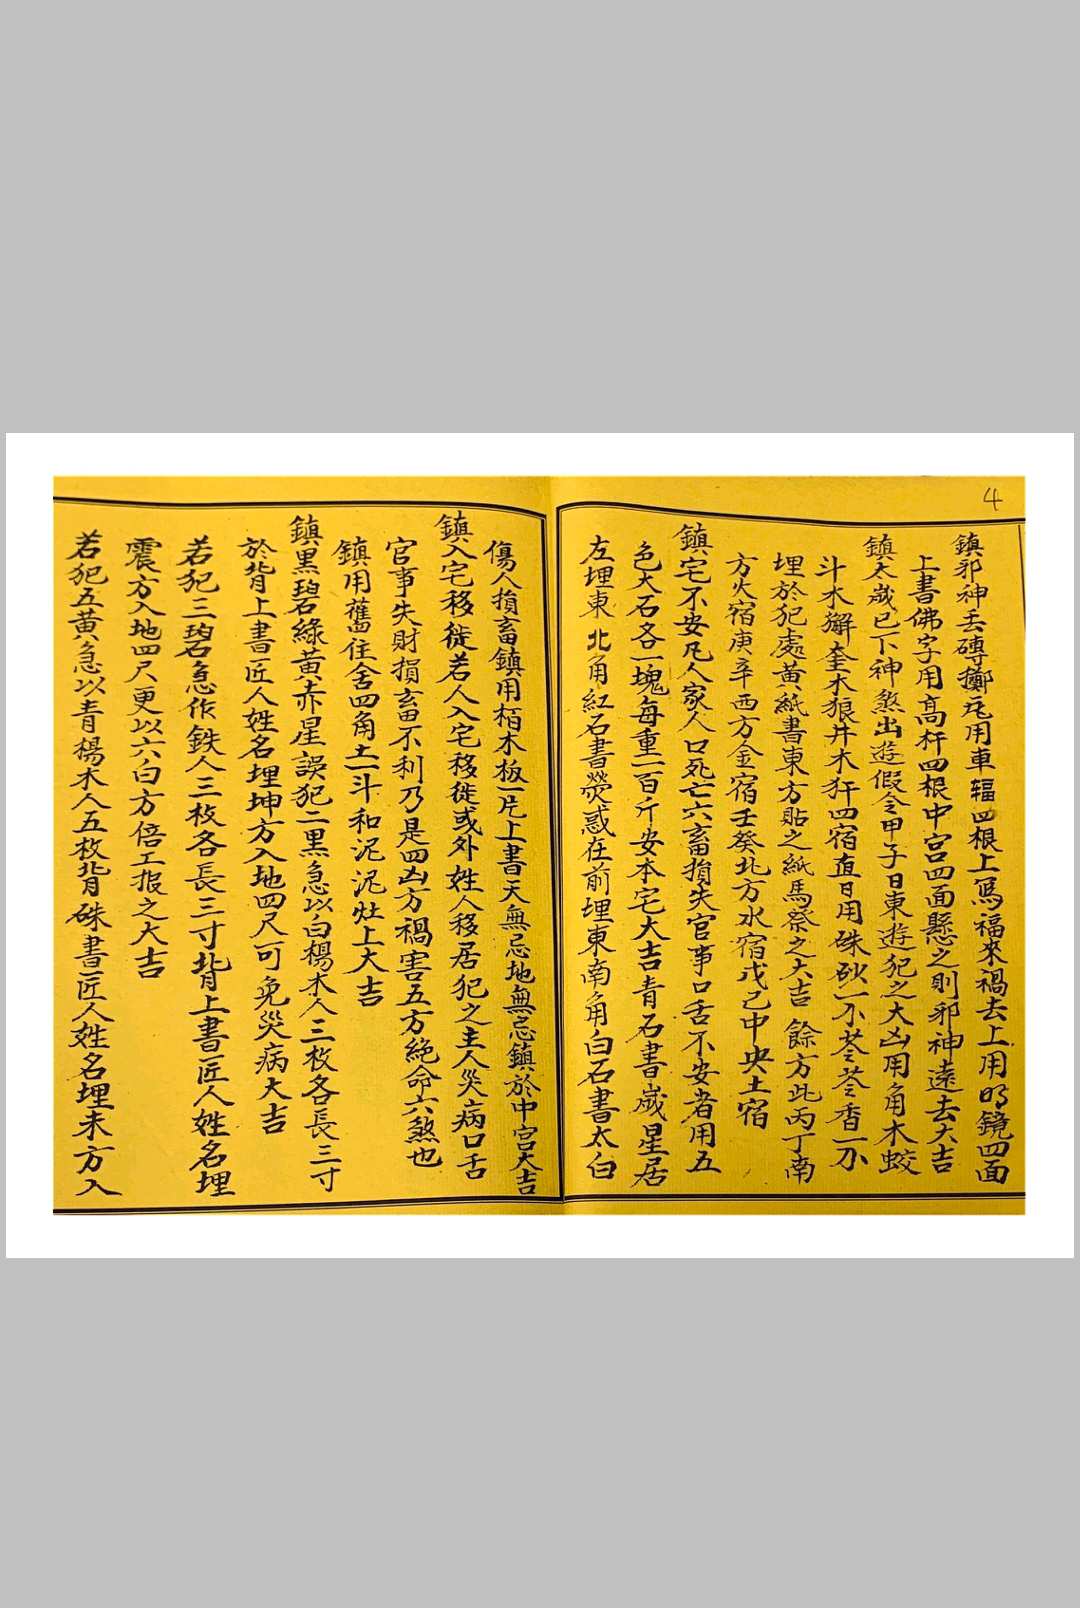 4
鎮邪神丢磚擲瓦用車輻四根上寫福來禍去上用明鏡四面
上書佛字用高杆四根中宮四面懸之則邪神遠去大吉
鎮太歲已下神煞出遊假令甲子日東遊犯之大凶用角木蛟
斗木獬奎木狼井木犴四宿直日用硃砂一不苓苓香一不
埋於犯處黃紙書東方貼之紙馬祭之大吉 餘方此丙丁南
方火宿庚辛西方金宿壬癸北方水宿戊己中央土宿
鎮宅不安凡人家人口死亡六畜損失官事口舌不安者用五
色大石各一塊每重一百斤安本宅大吉青石書歲星居
左埋東北角紅石書熒惑在前埋東南角白石書太白
傷人損畜鎮用栢木板一片上書天無忌地無忌鎮於中宮大吉
鎮入宅移徙若人入宅移徙或外姓人移居犯之主人災病口舌
官事失財損畜不利乃是四凶方禍害五方絶命六煞也
鎮用舊住舍四角土一斗和泥泥灶上大吉
鎮黑碧綠黃赤星誤犯二黑急以白楊木人三枚各長三寸
於背上書匠人姓名埋坤方入地四尺可免災病大吉
若犯三碧急作鉄人三枚各長三寸背上書匠人姓名埋
震方入地四尺更以六白方倍工报之大吉
若犯五黃急以青楊木人五枚背硃書匠人姓名埋未方入